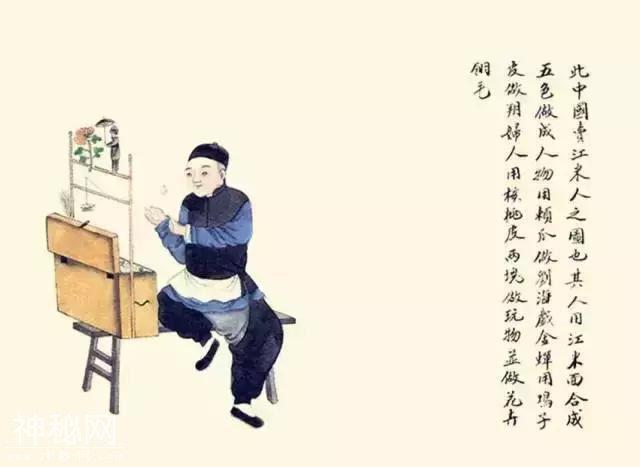 此中國賣江米人之圖也其人用江米面合成
五色做成人物用賴瓜做劉海戲金蟬用塢子
皮做翔婦人用核桃皮兩塊做玩物並做花卉
翎毛
神秘网